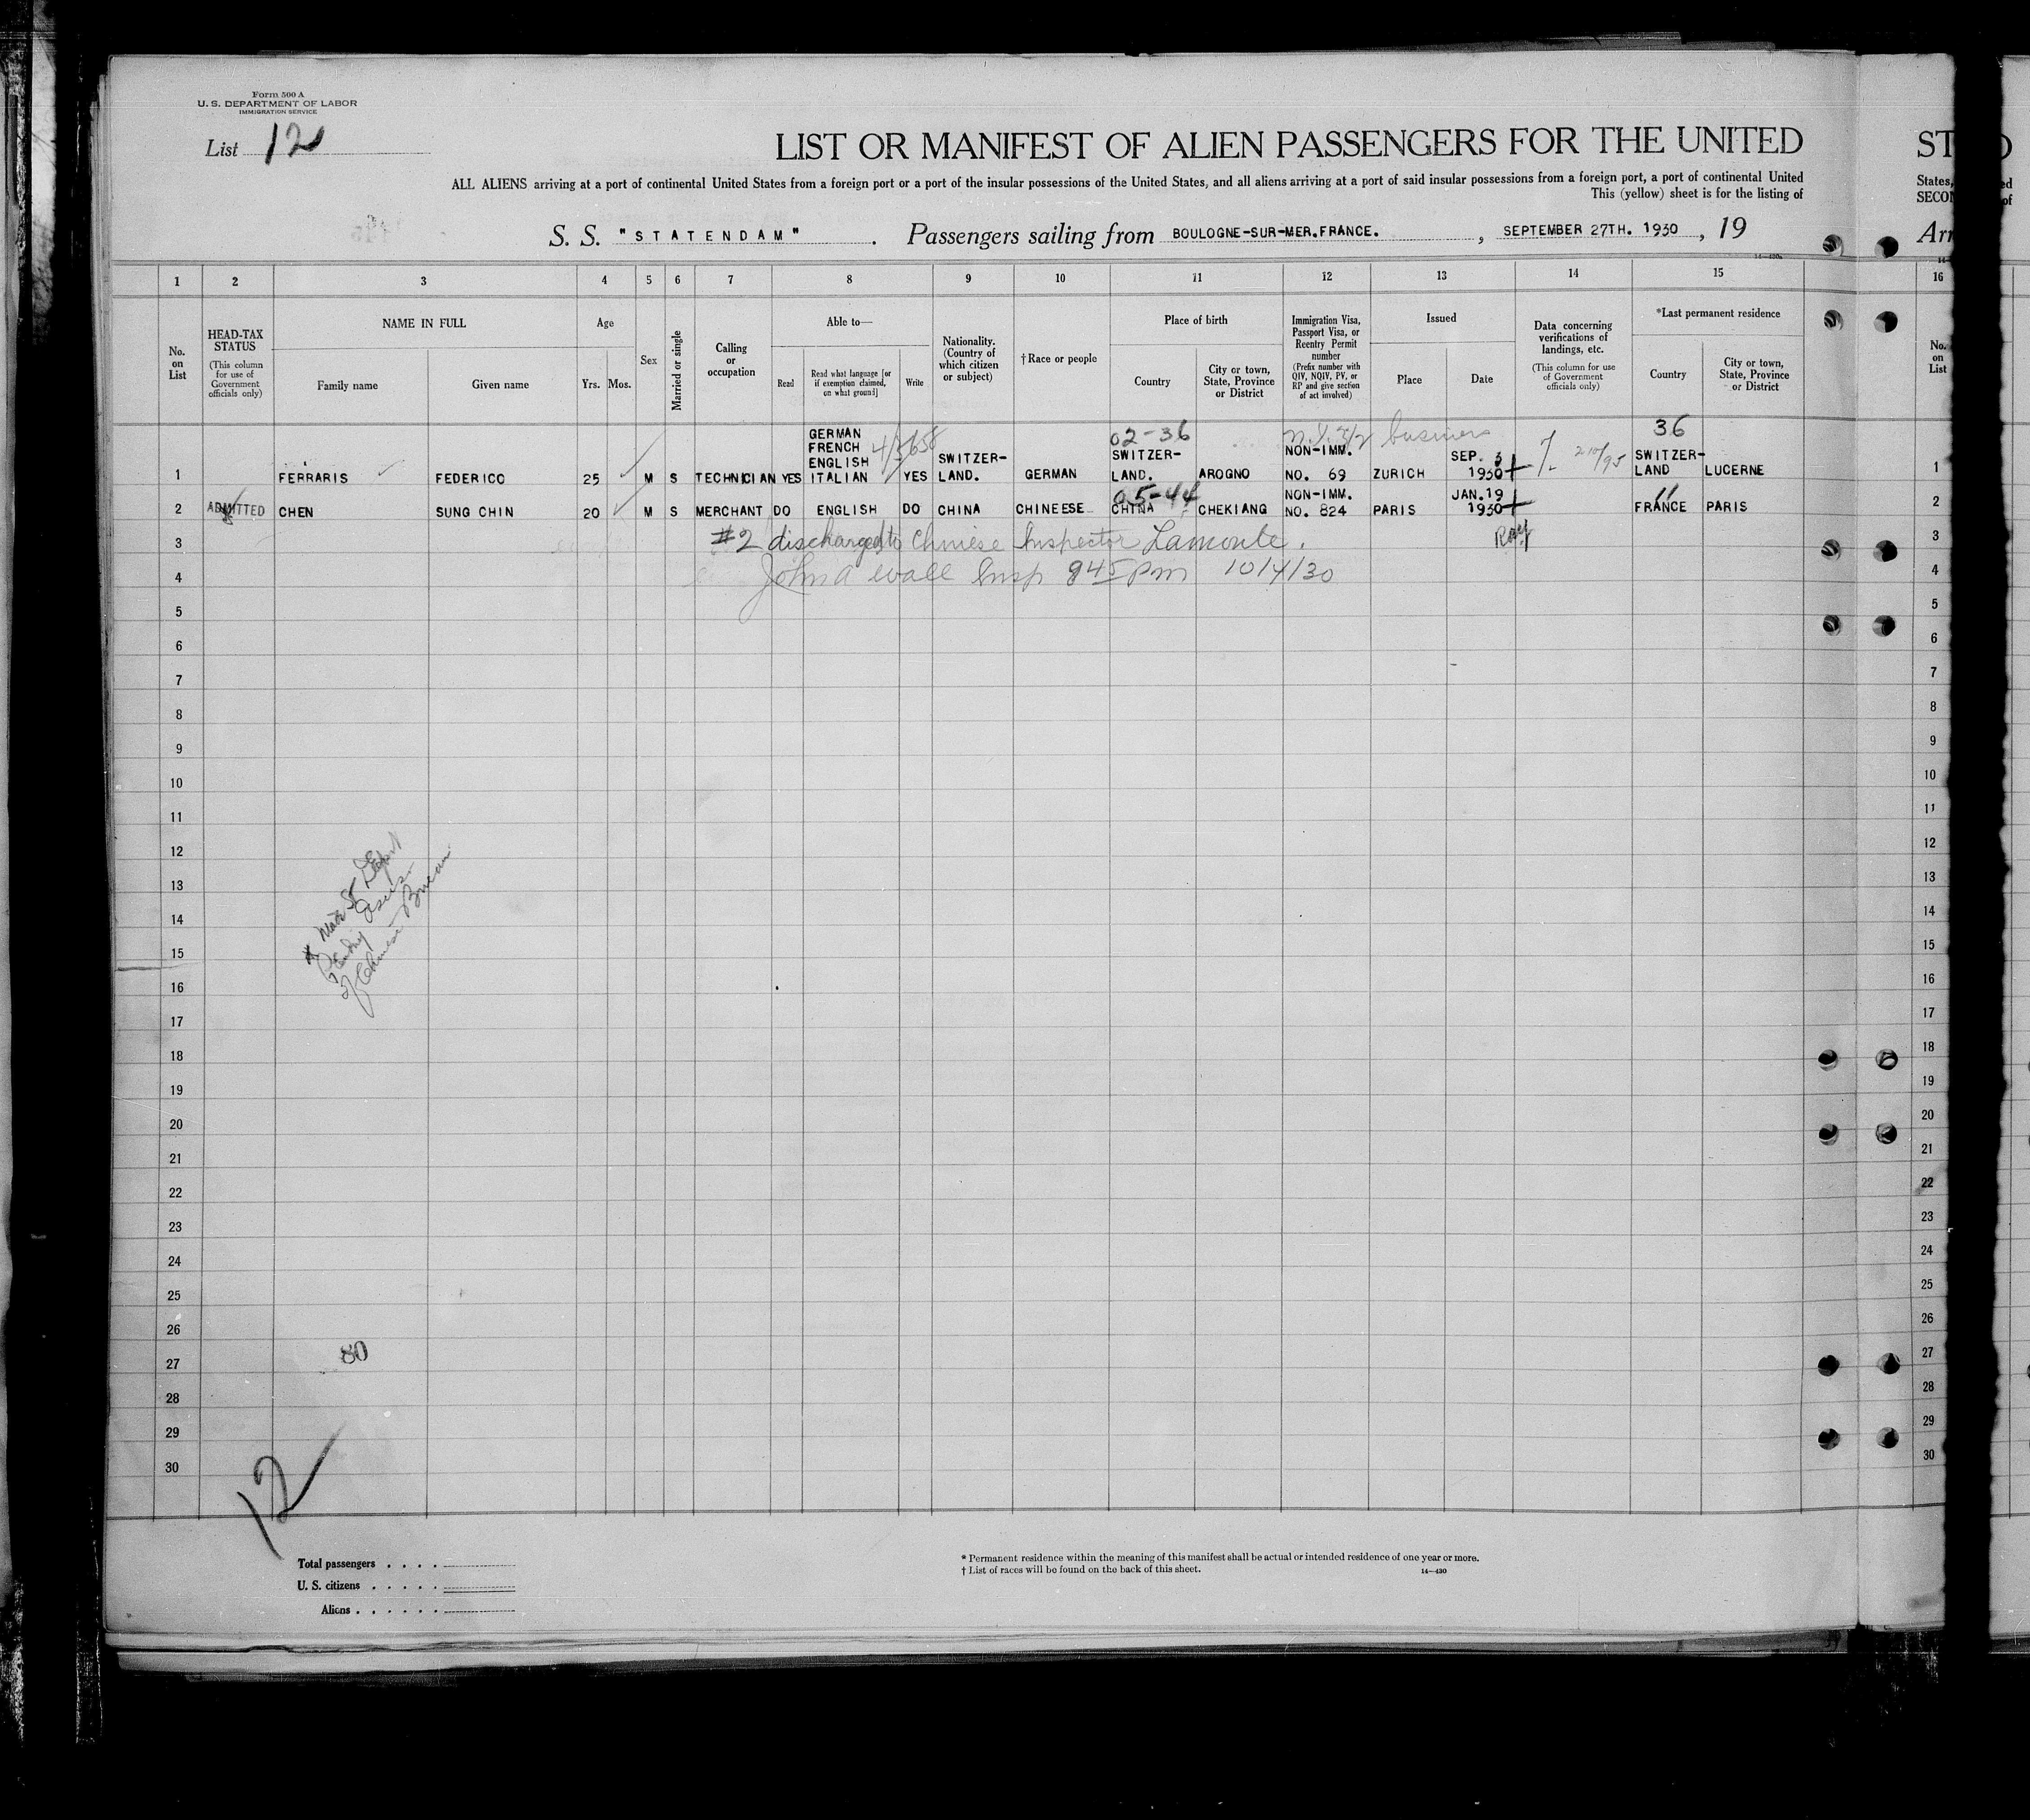 Form 500 A
U. S. DEPARTMENT OF LABOR
IMMIGRATION SERVICE
List 12
LIST OR MANIFEST OF ALIEN PASSENGERS FOR THE UNITED
ST
ALL ALIENS arriving at a port of continental United States from a foreign port or a port of the insular possessions of the United States, and all aliens arriving at a port of said insular possessions from a foreign port, a port of continental United
States,
This (yellow) sheet is for the listing of
SECON
S. S. "STATENDAM" . Passengers sailing from BOULOGNE-SUR-MER.FRANCE. , SEPTEMBER 27TH. 1930 , 19
Arr
1 2 3 4 5 6 7 8 9 10 11 12 13 14 15 16
No. on List
HEAD-TAX STATUS (This column for use of Government officials only)
NAME IN FULL
Family name Given name
Age
Yrs. Mos.
Sex
Married or single
Calling or occupation
Able to—
Read
Read what language [or if exemption claimed, on what ground]
Write
Nationality. (Country of which citizen or subject)
†Race or people
Place of birth
Country
City or town, State, Province or District
Immigration Visa, Passport Visa, or Reentry Permit number (Prefix number with QIV, NQIV, PV, or RP and give section of act involved)
Issued
Place Date
Data concerning verifications of landings, etc. (This column for use of Government officials only)
*Last permanent residence
Country
City or town, State, Province or District
No. on List
02-36 business 36
1 FERRARIS FEDERICO 25 M S TECHNICIAN YES GERMAN FRENCH ENGLISH ITALIAN YES SWITZER-LAND. GERMAN SWITZER-LAND. AROGNO NON-IMM. NO. 69 ZURICH SEP. 3 1930 SWITZER-LAND LUCERNE 1
05-44 11
2 ADMITTED CHEN SUNG CHIN 20 M S MERCHANT DO ENGLISH DO CHINA CHINEESE CHINA CHEKIANG NON-IMM. NO. 824 PARIS JAN.19 1930 FRANCE PARIS 2
3 #2 discharged to Chinese Inspector Lamonte. 3
4 John A Wall Insp 845 pm 10/4/30 4
5 5
6 6
7 7
8 8
9 9
10 10
11 11
12 12
13 13
14 14
15 15
16 16
17 17
18 18
19 19
20 20
21 21
22 22
23 23
24 24
25 25
26 26
27 27
28 28
29 29
30 30
of Chinese Bureau
80
12
Total passengers . . . .
U. S. citizens . . . . .
Aliens . . . . . .
* Permanent residence within the meaning of this manifest shall be actual or intended residence of one year or more.
† List of races will be found on the back of this sheet. 14—430